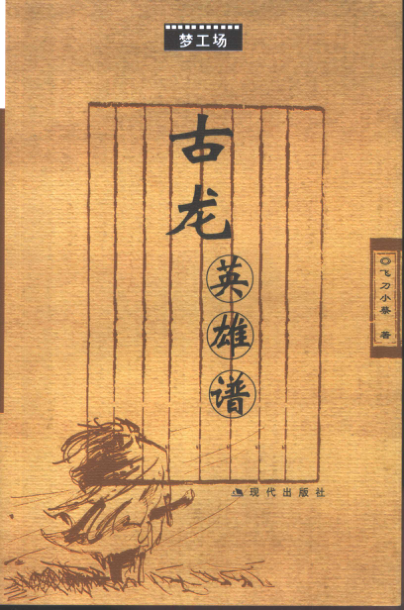 梦工场
古龙
英雄谱
◎飞刀小蔡 著
现代出版社